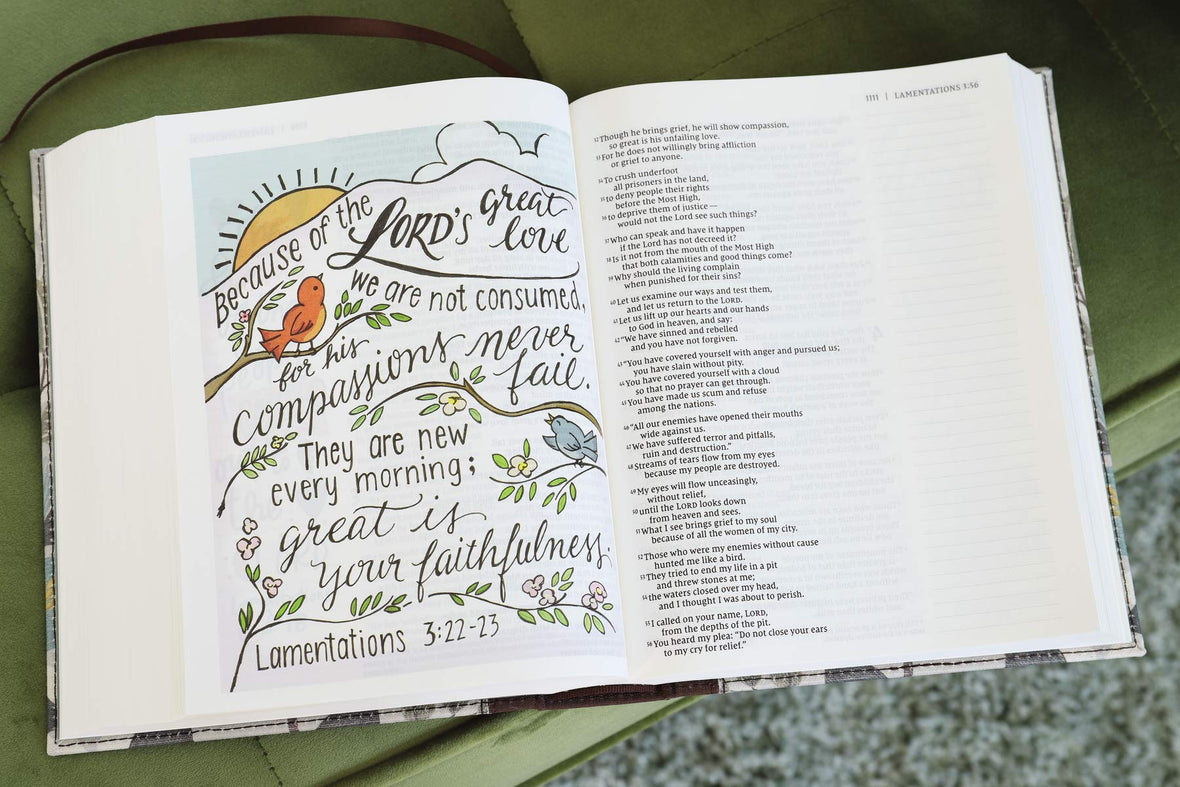 Because of the
LORD'S great
love
we are not consumed,
for his
compassions never
fail.
They are new
every morning;
great is
your faithfulness.
Lamentations 3:22-23
1111 | LAMENTATIONS 3:56
32 Though he brings grief, he will show compassion,
so great is his unfailing love.
33 For he does not willingly bring affliction
or grief to anyone.
34 To crush underfoot
all prisoners in the land,
35 to deny people their rights
before the Most High,
36 to deprive them of justice—
would not the Lord see such things?
37 Who can speak and have it happen
if the Lord has not decreed it?
38 Is it not from the mouth of the Most High
that both calamities and good things come?
39 Why should the living complain
when punished for their sins?
40 Let us examine our ways and test them,
and let us return to the LORD.
41 Let us lift up our hearts and our hands
to God in heaven, and say:
42 "We have sinned and rebelled
and you have not forgiven.
43 "You have covered yourself with anger and pursued us;
you have slain without pity.
44 You have covered yourself with a cloud
so that no prayer can get through.
45 You have made us scum and refuse
among the nations.
46 "All our enemies have opened their mouths
wide against us.
47 We have suffered terror and pitfalls,
ruin and destruction."
48 Streams of tears flow from my eyes
because my people are destroyed.
49 My eyes will flow unceasingly,
without relief,
50 until the LORD looks down
from heaven and sees.
51 What I see brings grief to my soul
because of all the women of my city.
52 Those who were my enemies without cause
hunted me like a bird.
53 They tried to end my life in a pit
and threw stones at me;
54 the waters closed over my head,
and I thought I was about to perish.
55 I called on your name, LORD,
from the depths of the pit.
56 You heard my plea: "Do not close your ears
to my cry for relief."